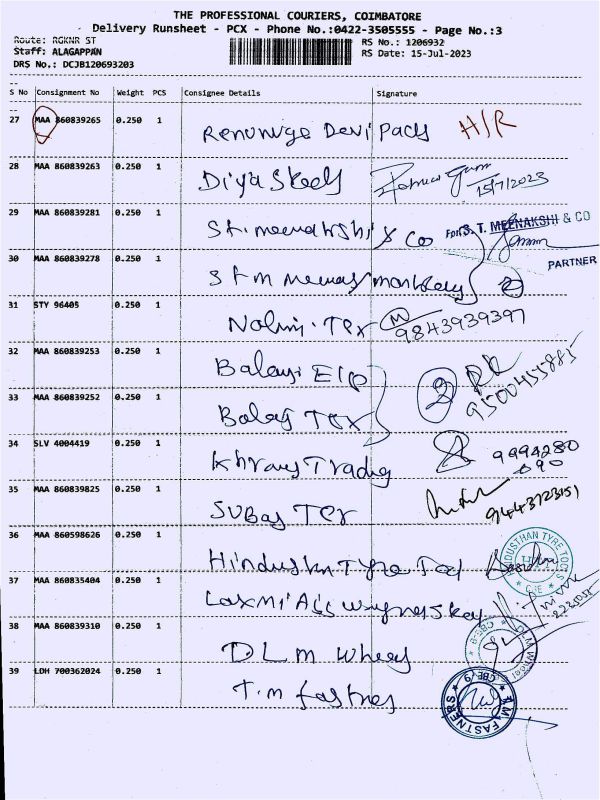 THE PROFESSIONAL COURIERS, COIMBATORE
Delivery Runsheet - PCX - Phone No.:0422-3505555 - Page No.:3
Route: RGKNR ST
RS No.: 1206932
Staff: ALAGAPPAN
RS Date: 15-Jul-2023
DRS No.: DCJB120693203
S No Consignment No Weight PCS Consignee Details Signature
27 MAA 860839265 0.250 1 Renuniga Devi Pads H/R
28 MAA 860839263 0.250 1 Diya Steels 15/7/2023
29 MAA 860839281 0.250 1 St. meenakshi & Co For S. T. MEENAKSHI & CO
PARTNER
30 MAA 860839278 0.250 1 STM 2
31 STY 96405 0.250 1 Tex M 9843939397
32 MAA 860839253 0.250 1 Balaji Elp 2 9500455885
33 MAA 860839252 0.250 1 Balaj Tex
34 SLV 4004419 0.250 1 Trading 9994280
090
35 MAA 860839825 0.250 1 Subas Tex
36 MAA 860598626 0.250 1 Hindustan Tyre HINDUSTHAN TYRE TOCS CJE
37 MAA 860835404 0.250 1 Laxmi
38 MAA 860839310 0.250 1 D.L M Wheels D.L.M Wheel CBE-9
39 LDH 700362024 0.250 1 T.M fastnes T.M FASTNERS CBE 9